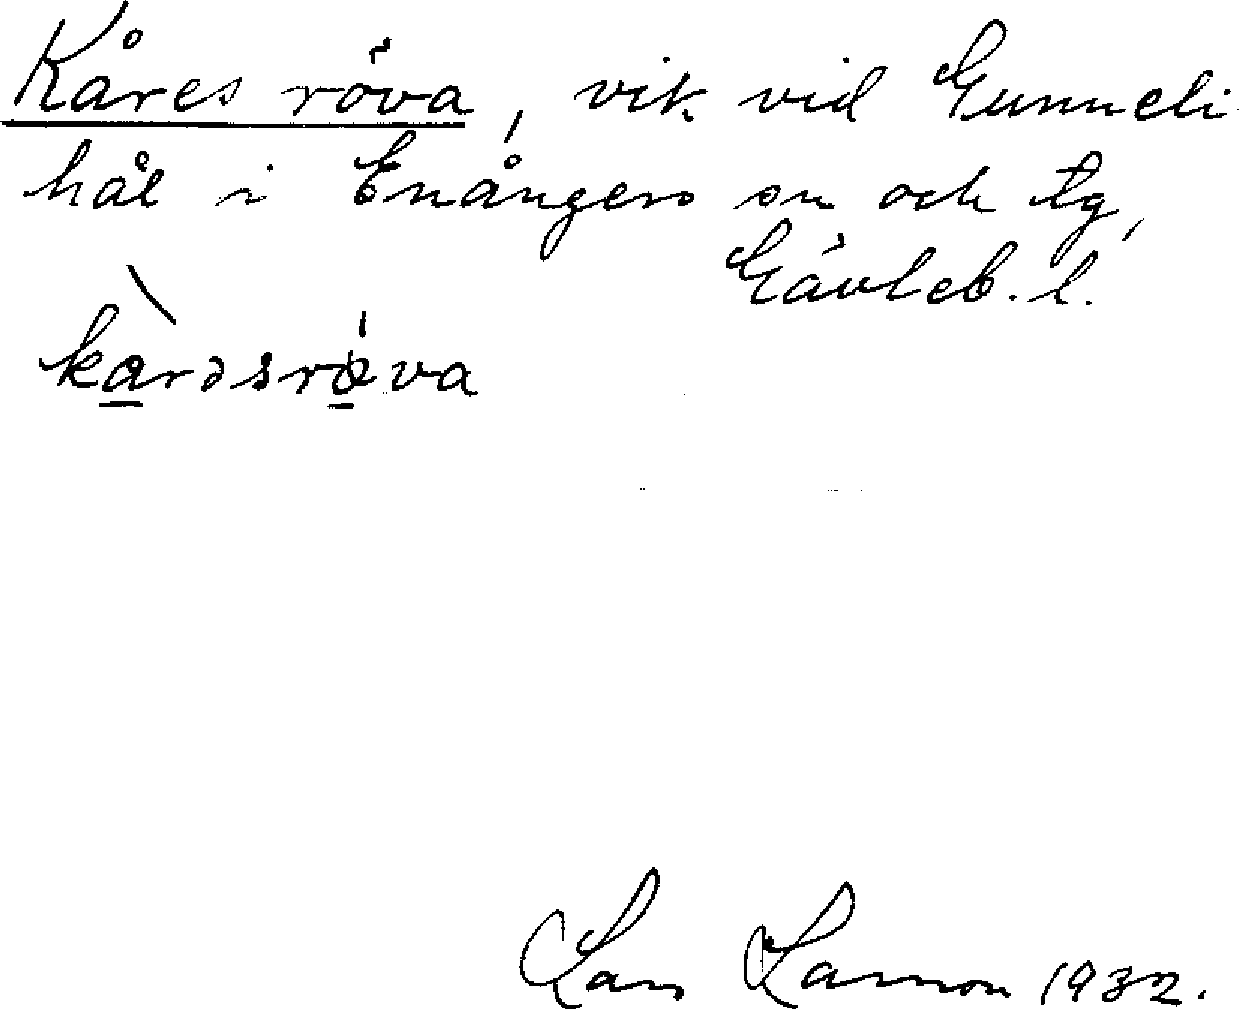 Kåres röva, vik vid Gunneli
hål i Enångers sn och tg,
Gävleb. l.
karəsrøva
Lars Larson 1932.